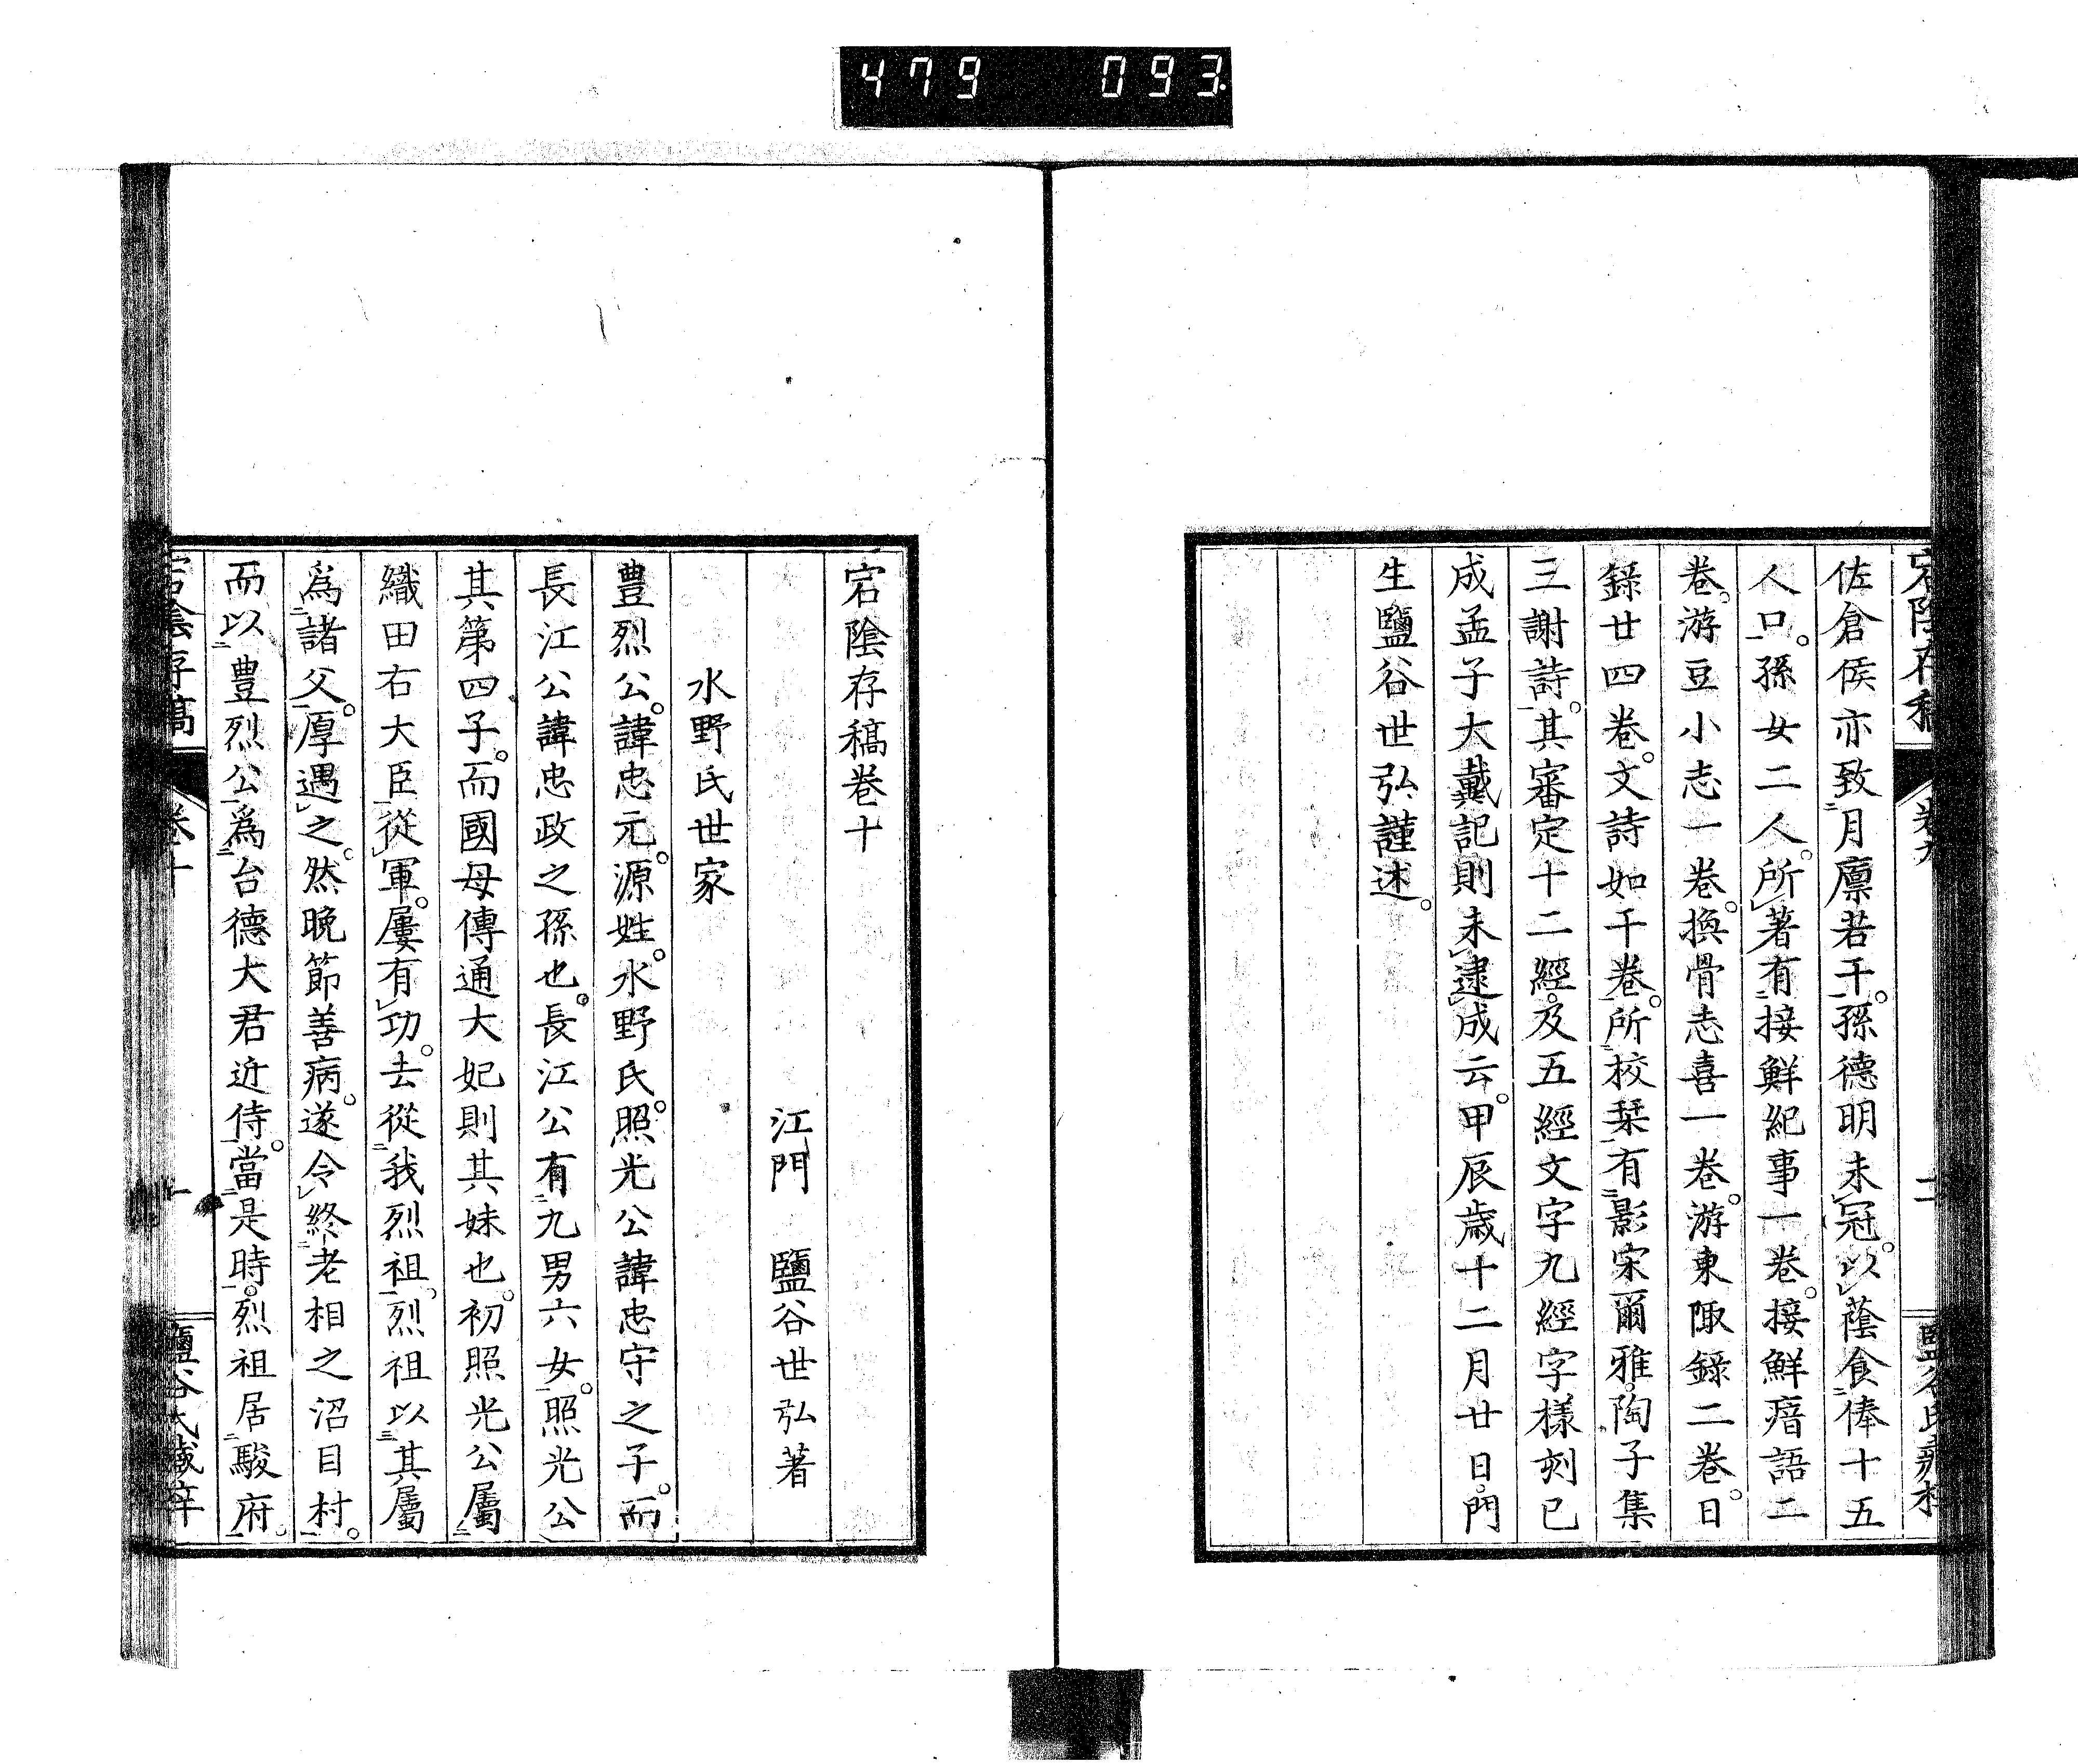 479 093
宕陰存稿 卷九
佐倉侯亦致二月廩若干一。孫德明未レ冠。以レ蔭食二俸十五
人口一。孫女二人。所レ著有二接鮮紀事一卷。接鮮瘖語二
卷。游豆小志一卷。換骨志喜一卷。游東陬錄二卷。日
錄廿四卷。文詩如干卷一。所二校栞一有二影宋爾雅。陶子集
三謝詩一。其審定十二經。及五經文字九經字樣刻已
成孟子大戴記則未レ逮レ成云。甲辰歲十二月廿日。門
生鹽谷世弘謹述。
宕陰存稿卷十
江門 鹽谷世弘著
水野氏世家
豊烈公。諱忠元。源姓。水野氏。照光公諱忠守之子。而
長江公諱忠政之孫也。長江公有二九男六女一。照光公
其第四子。而國母傳通大妃則其妹也。初照光公屬二
織田右大臣一從レ軍。屢有レ功。去從二我烈祖一。烈祖以三其屬
爲二諸父一。厚遇レ之。然晚節善病。遂令レ終二老相之沼目村一。
而以二豊烈公一爲二台德大君近侍一。當二是時一。烈祖居二駿府一。
宕陰存稿 卷十 一 鹽谷氏藏梓